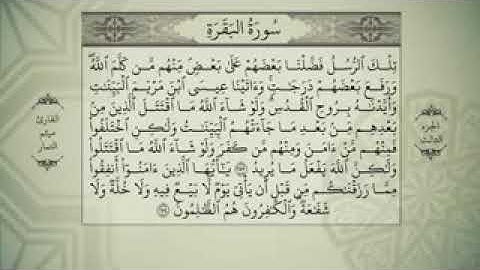 سُورَةُ البَقَرَةِ
تِلْكَ ٱلرُّسُلُ فَضَّلْنَا بَعْضَهُمْ عَلَىٰ بَعْضٍ مِّنْهُم مَّن كَلَّمَ ٱللَّهُ
وَرَفَعَ بَعْضَهُمْ دَرَجَٰتٍ وَءَاتَيْنَا عِيسَى ٱبْنَ مَرْيَمَ ٱلْبَيِّنَٰتِ
وَأَيَّدْنَٰهُ بِرُوحِ ٱلْقُدُسِ وَلَوْ شَآءَ ٱللَّهُ مَا ٱقْتَتَلَ ٱلَّذِينَ مِنۢ
بَعْدِهِم مِّنۢ بَعْدِ مَا جَآءَتْهُمُ ٱلْبَيِّنَٰتُ وَلَٰكِنِ ٱخْتَلَفُوا۟
فَمِنْهُم مَّنْ ءَامَنَ وَمِنْهُم مَّن كَفَرَ وَلَوْ شَآءَ ٱللَّهُ مَا ٱقْتَتَلُوا۟
وَلَٰكِنَّ ٱللَّهَ يَفْعَلُ مَا يُرِيدُ ۝٢٥٣ يَٰٓأَيُّهَا ٱلَّذِينَ ءَامَنُوٓا۟ أَنفِقُوا۟
مِمَّا رَزَقْنَٰكُم مِّن قَبْلِ أَن يَأْتِىَ يَوْمٌ لَّا بَيْعٌ فِيهِ وَلَا خُلَّةٌ وَلَا
شَفَٰعَةٌ وَٱلْكَٰفِرُونَ هُمُ ٱلظَّٰلِمُونَ ۝٢٥٤
الجزء
الثالث
القارئ
ميثم
التمار